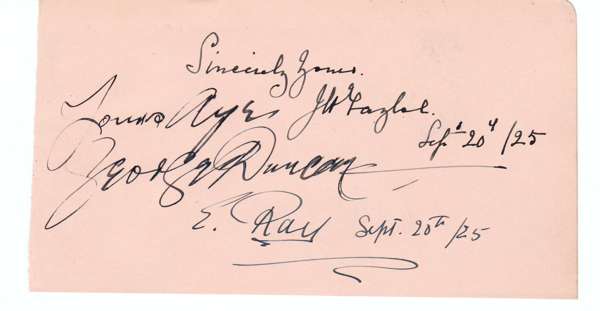 Sincerely Yours.
Yours Aye J H Taylor.
Sept 20th /25
George Duncan
E. Ray Sept. 20th /25